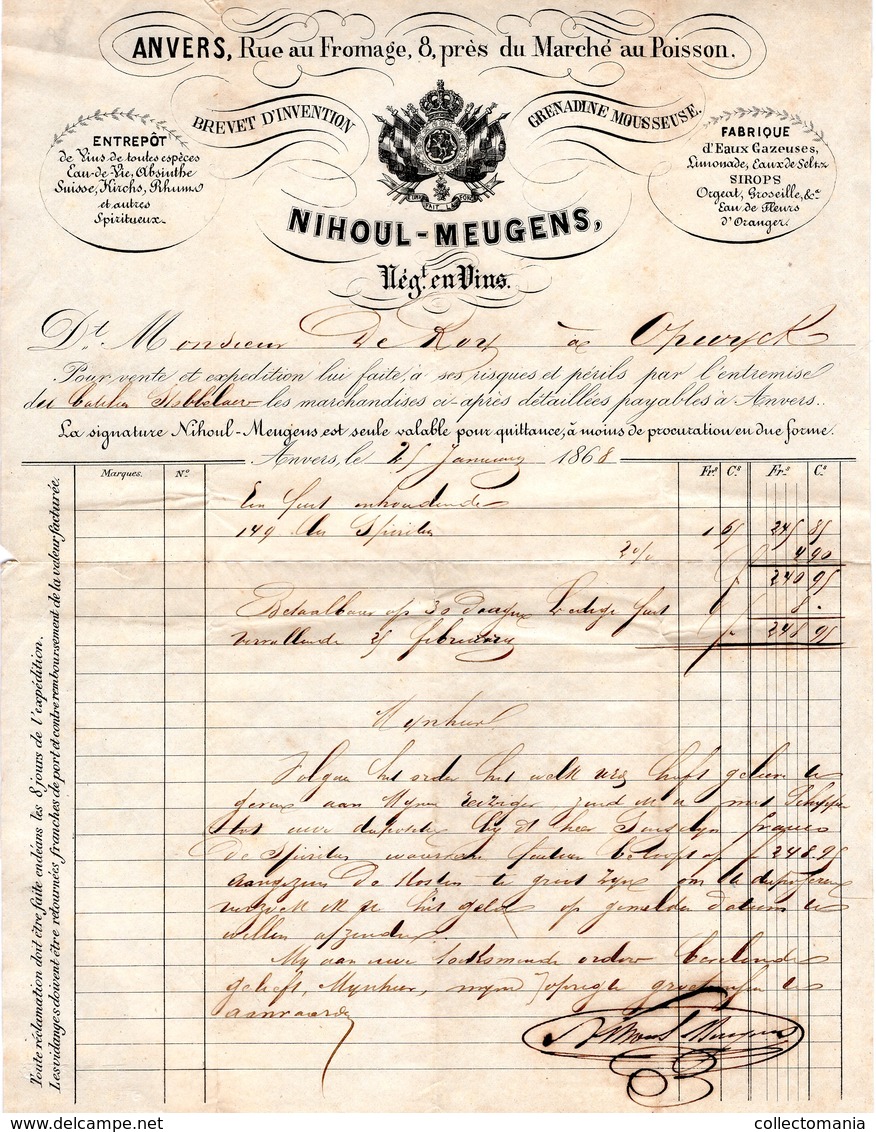 ANVERS, Rue au Fromage, 8, près du Marché au Poisson.
BREVET D'INVENTION
GRENADINE MOUSSEUSE.
ENTREPÔT
de Vins de toutes espèces
Eau-de-Vie, Absinthe
Suisse, Kirchs, Rhums
et autres
Spiritueux.
FABRIQUE
d'Eaux Gazeuses,
Limonade, Eaux de Seltz
SIROPS
Orgeat, Groseille, &ca
Eau de Fleurs
d'Oranger.
NIHOUL-MEUGENS,
Négt. en Vins.
Dt. Monsieur De Roy à Opwyck
Pour vente et expédition lui faite, à ses risques et périls par l'entremise
les marchandises ci-après détaillées payables à Anvers.
La signature Nihoul-Meugens est seule valable pour quittance, à moins de procuration en due forme.
Anvers, le 25 January 1868
Marques. No. Frs. Cs. Frs. Cs.
Een fust inhoudende
149 Spiritus 1 65 245 85
2 % 4 90
240 95
Betaalbaar op 30 dagen Ledige fust 8 -
vervallende 25 february 248 95
Mynheer
Volgens het order het welk UEd heeft gelieven te
geven aan Mynen Reiziger zend ik u met Schipper
tot uwe dispositie by de heer franco
de Spiritus waarvan factuur beloopt op f 248.95
aangezien de kosten te groot zyn om te disposeren
verzoek ik UE het geld op gemelden datum te
willen afzenden.
My aan uwe toekomende orders bevelende
gelieft, Mynheer, myne opregte groetenissen te
aanvaarden
Nihoul Meugens
Toute réclamation doit être faite endéans les 8 jours de l'expédition.
Les vidanges doivent être retournées franches de port et contre remboursement de la valeur facturée.
collectomania